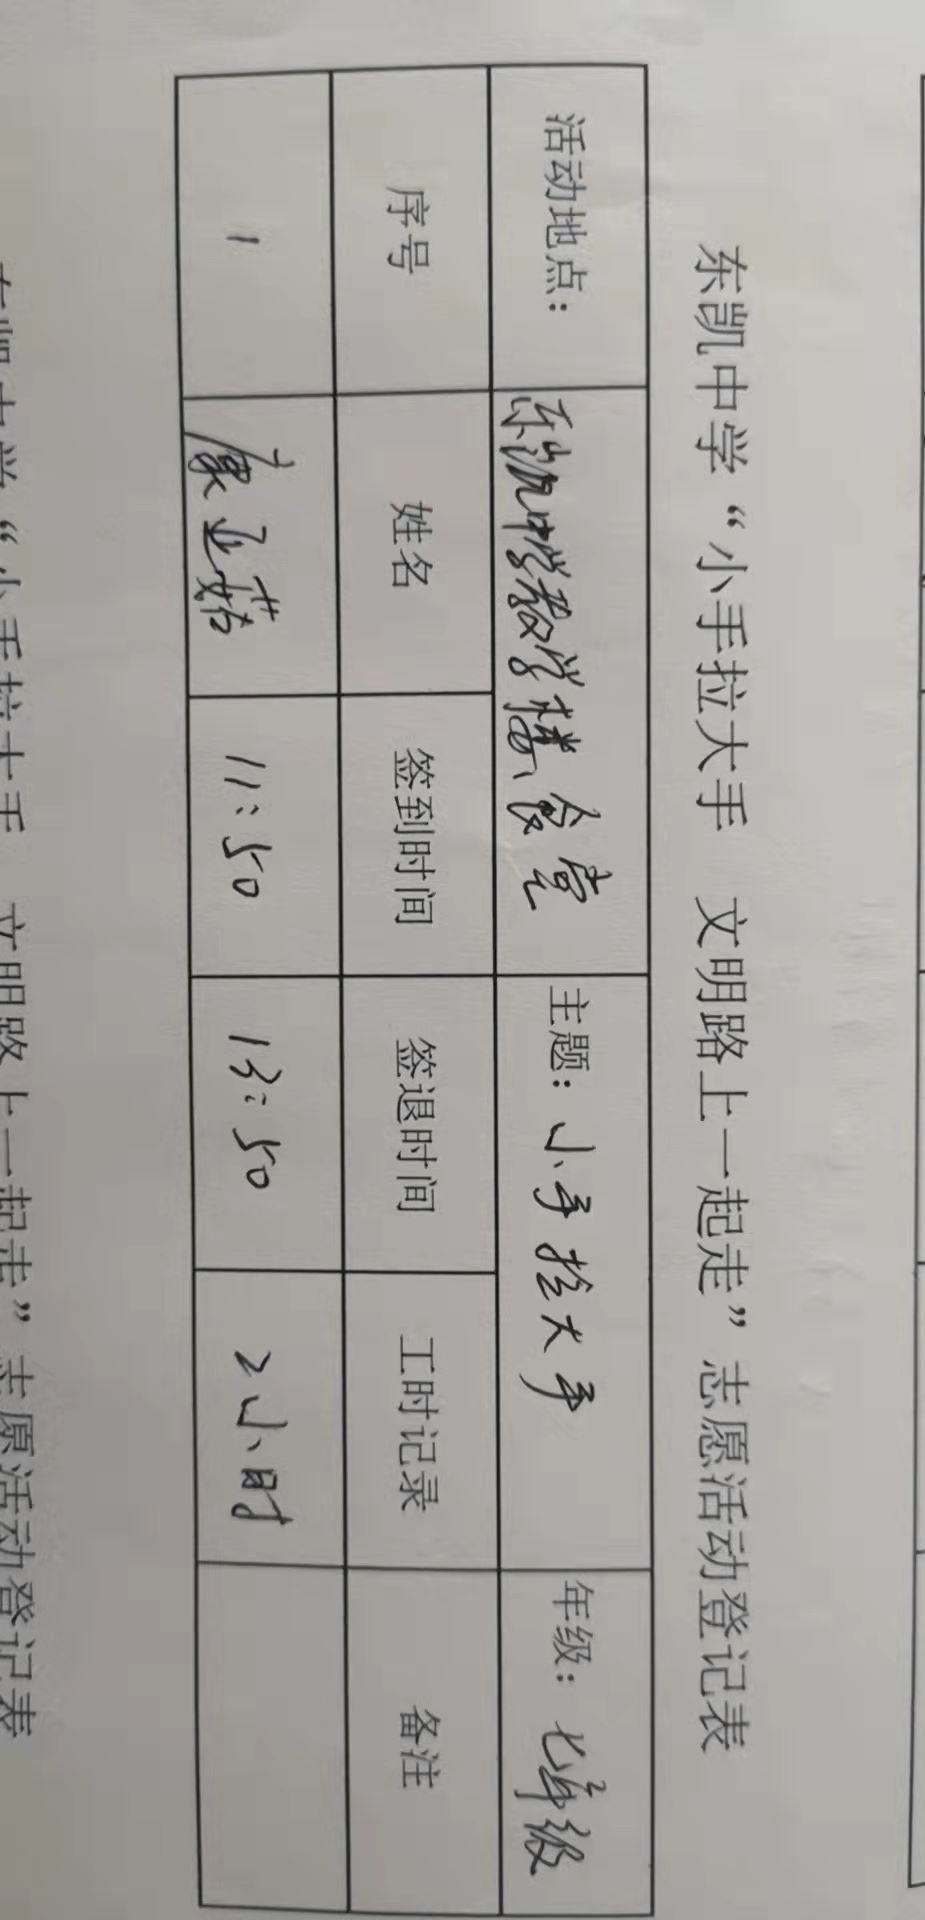 东凯中学“小手拉大手 文明路上一起走”志愿活动登记表
活动地点： 东凯中学教学楼、食堂 主题：小手拉大手 年级：七年级
序号 姓名 签到时间 签退时间 工时记录 备注
1 康亚茹 11:50 13:50 2小时
东凯中学“小手拉大手 文明路上一起走”志愿活动登记表